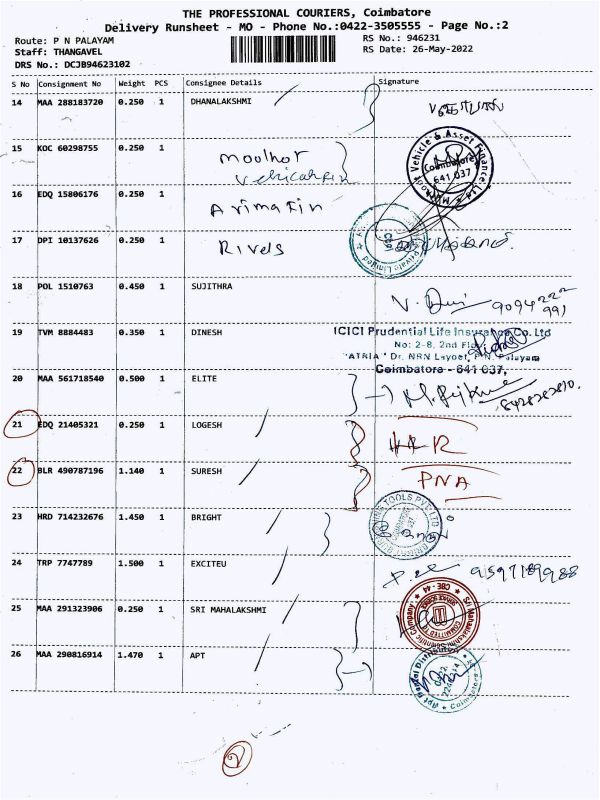 THE PROFESSIONAL COURIERS, Coimbatore
Delivery Runsheet - MO - Phone No.:0422-3505555 - Page No.:2
Route: P N PALAYAM RS No.: 946231
Staff: THANGAVEL RS Date: 26-May-2022
DRS No.: DCJB94623102
S No Consignment No Weight PCS Consignee Details Signature
14 MAA 288183720 0.250 1 DHANALAKSHMI
15 KOC 60298755 0.250 1 Moolhot
Vehicahfin
Coimbatore
641 037
16 EDQ 15806176 0.250 1 Arimafin
17 DPI 10137626 0.250 1 Rivels
18 POL 1510763 0.450 1 SUJITHRA
9094222
991
19 TVM 8884483 0.350 1 DINESH ICICI Prudential Life Insurance Co. Ltd
No: 2-8, 2nd
"ATRIA" Dr. NRN Layoet, P.N. Palayam
Coimbatore - 641 037,
20 MAA 561718540 0.500 1 ELITE
21 EDQ 21405321 0.250 1 LOGESH
22 BLR 490787196 1.140 1 SURESH PNA
23 HRD 714232676 1.450 1 BRIGHT
24 TRP 7747789 1.500 1 EXCITEU 9597189988
25 MAA 291323906 0.250 1 SRI MAHALAKSHMI
26 MAA 290816914 1.470 1 APT
2